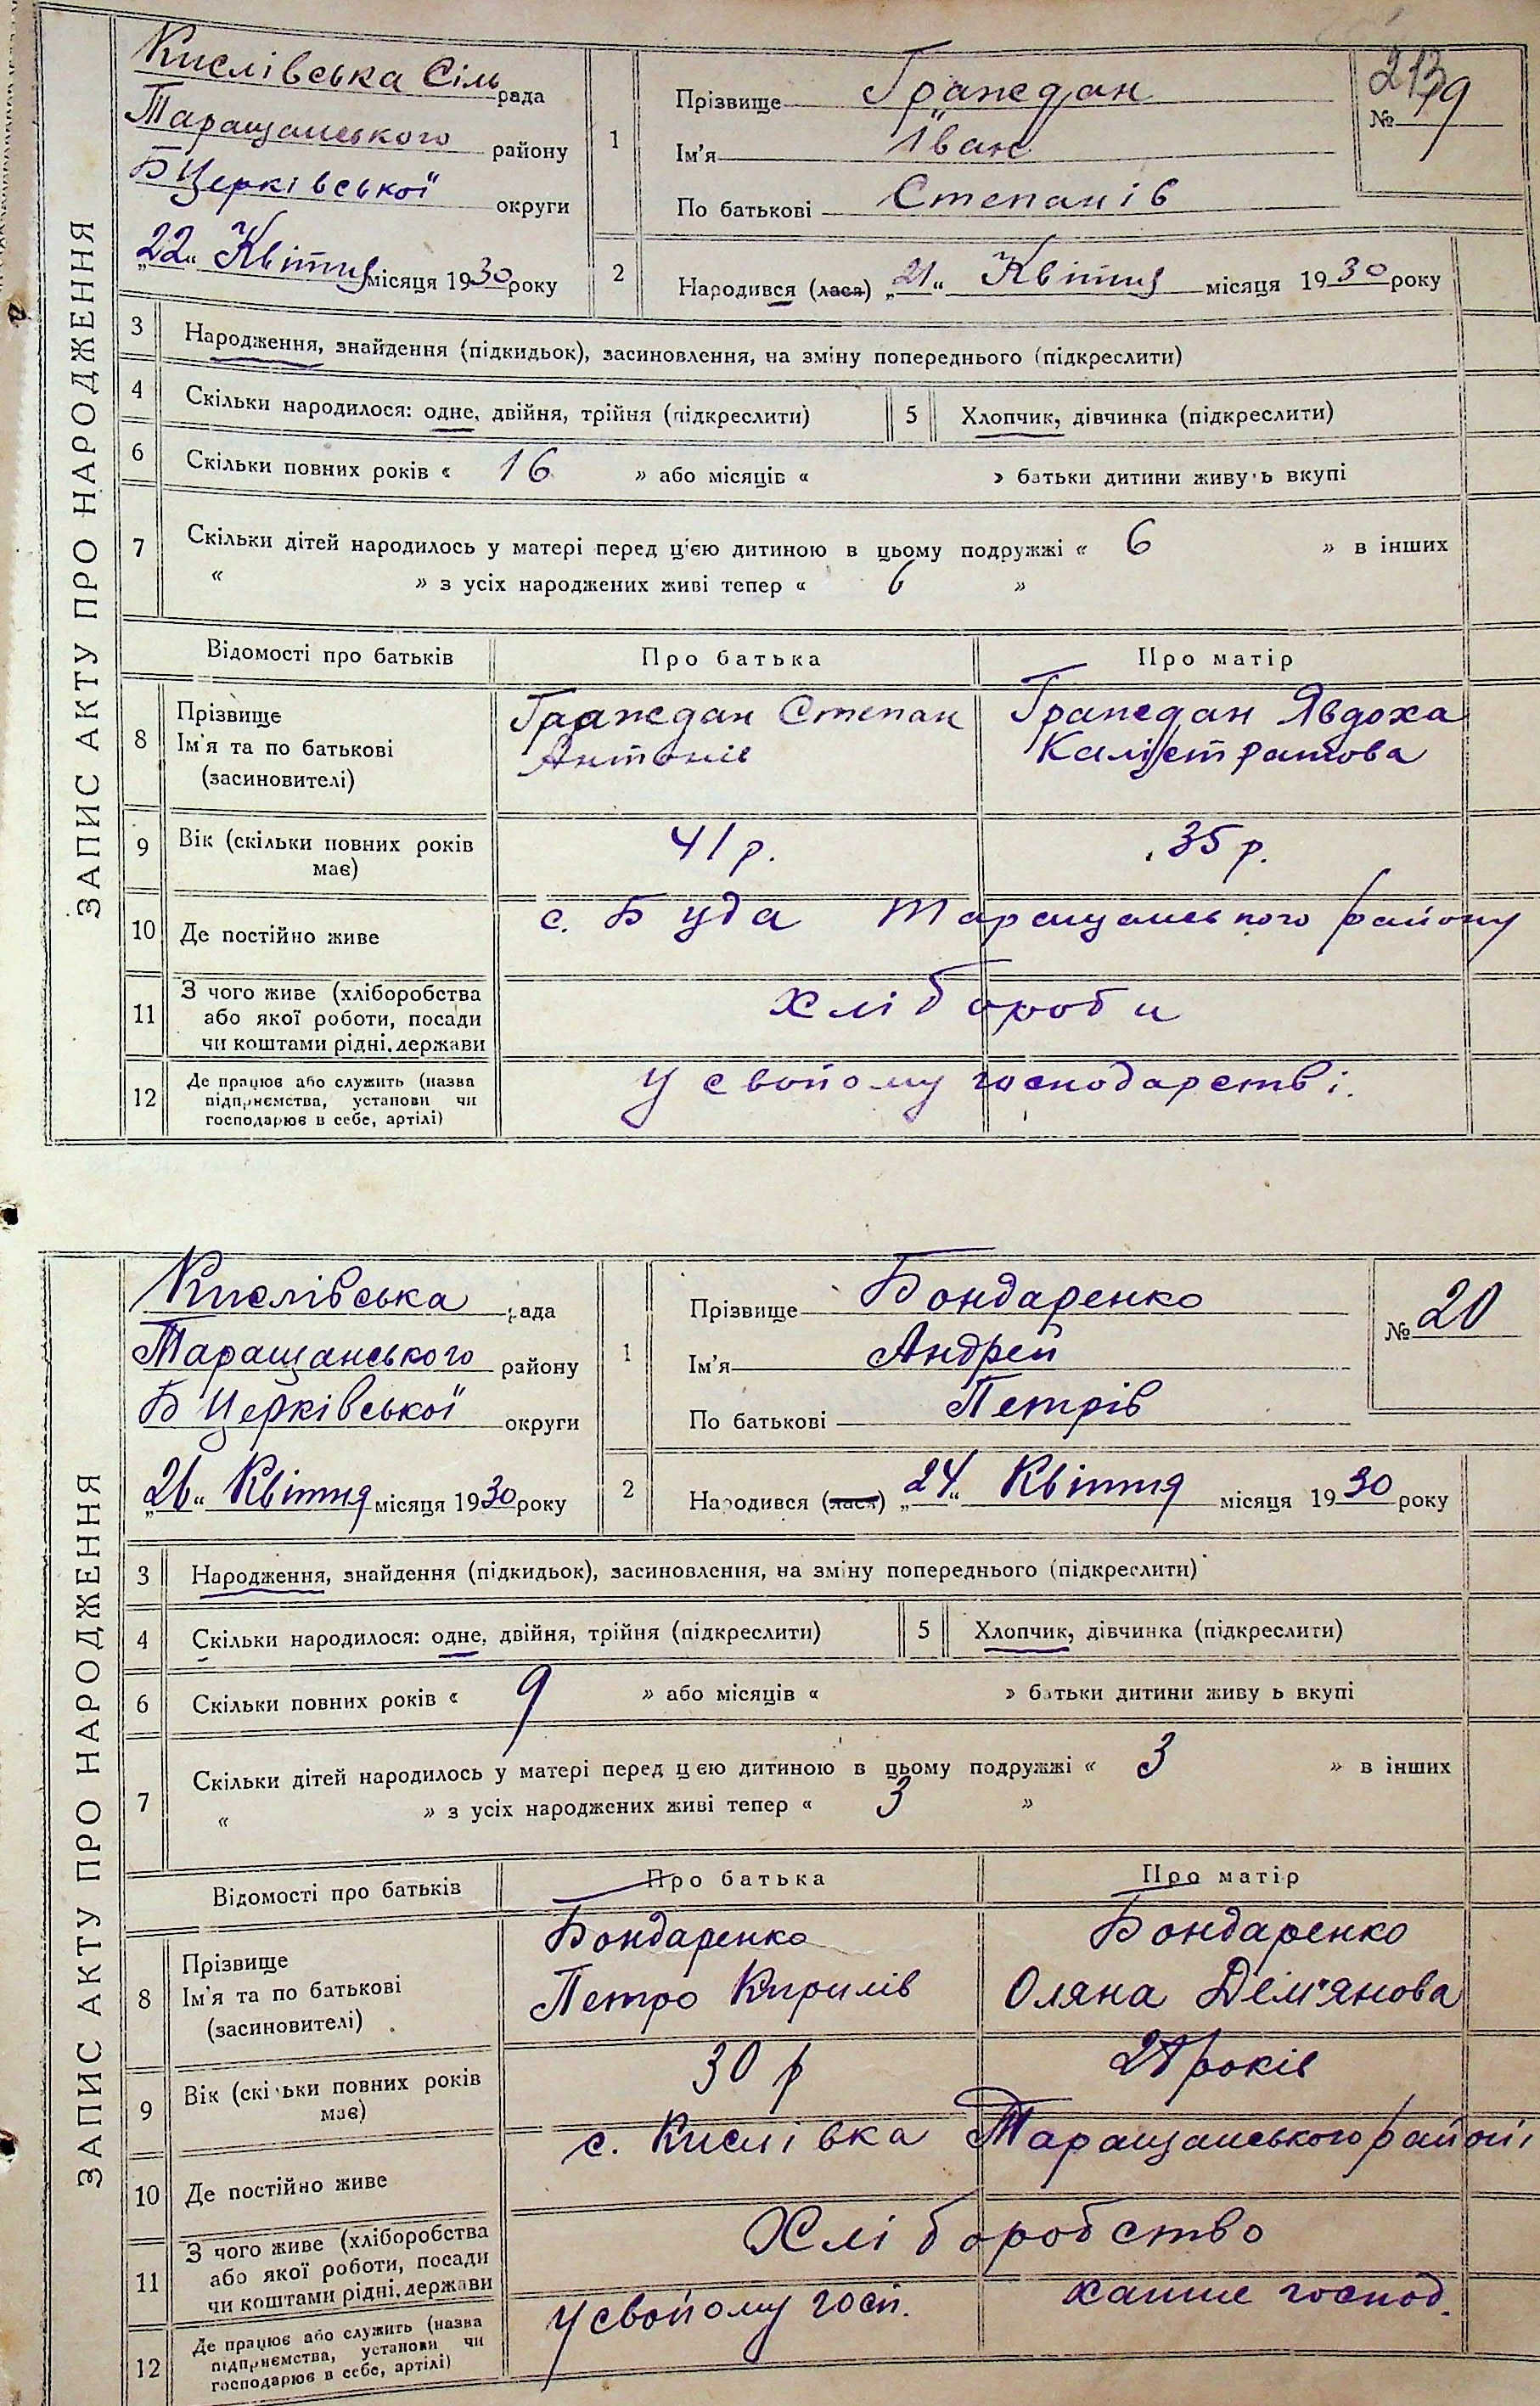 ЗАПИС АКТУ ПРО НАРОДЖЕННЯ
Кислівська Сіль рада
Таращанського району
БЦерківської округи
„22“ Квітня місяця 1930 року
1
Прізвище Граждан
Ім'я Іван
По батькові Степанів
№ 19
213
2
Народився (лася) „21“ Квітня місяця 1930 року
3 Народження, знайдення (підкидьок), засиновлення, на зміну попереднього (підкреслити)
4 Скільки народилося: одне, двійня, трійня (підкреслити) 5 Хлопчик, дівчинка (підкреслити)
6 Скільки повних років « 16 » або місяців « » батьки дитини живуть вкупі
7 Скільки дітей народилось у матері перед цією дитиною в цьому подружжі « 6 » в інших
« » з усіх народжених живі тепер « 6 »
Відомості про батьків Про батька Про матір
8 Прізвище Ім'я та по батькові (засиновителі)
Граждан Степан Антонів
Граждан Явдоха Калістратова
9 Вік (скільки повних років має) 41 р. 35 р.
10 Де постійно живе с. Буда Таращанського району
11 З чого живе (хліборобства або якої роботи, посади чи коштами рідні, держави хлібороби
12 Де працює або служить (назва підприємства, установи чи господарює в себе, артілі) У свойому господарстві.
ЗАПИС АКТУ ПРО НАРОДЖЕННЯ
Кислівська рада
Таращанського району
БЦерківської округи
„26“ Квітня місяця 1930 року
1
Прізвище Бондаренко
Ім'я Андрей
По батькові Петрів
№ 20
2
Народився (лася) „24“ Квітня місяця 1930 року
3 Народження, знайдення (підкидьок), засиновлення, на зміну попереднього (підкреслити)
4 Скільки народилося: одне, двійня, трійня (підкреслити) 5 Хлопчик, дівчинка (підкреслити)
6 Скільки повних років « 9 » або місяців « » батьки дитини живуть вкупі
7 Скільки дітей народилось у матері перед цією дитиною в цьому подружжі « 3 » в інших
« » з усіх народжених живі тепер « 3 »
Відомості про батьків Про батька Про матір
8 Прізвище Ім'я та по батькові (засиновителі)
Бондаренко Петро Кирилів
Бондаренко Оляна Дем'янова
9 Вік (скільки повних років має) 30 р років
10 Де постійно живе с. Кислівка Таращанського
11 З чого живе (хліборобства або якої роботи, посади чи коштами рідні, держави Хліборобство
12 Де працює або служить (назва підприємства, установи чи господарює в себе, артілі) У свойому госп. хатне господ.